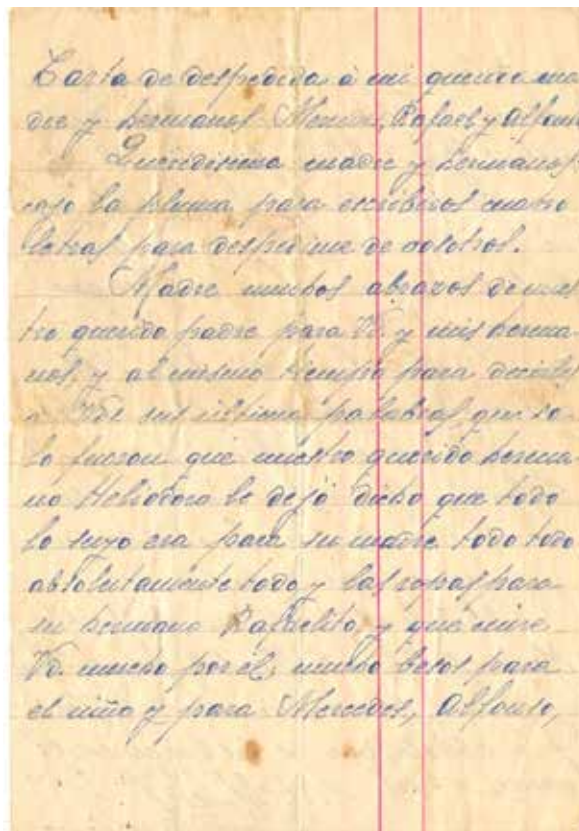 Carta de despedida á mi querida ma
dre y hermanos Merce, Rafael y Alfonso
Queridisima madre y hermanos
cojo la pluma para escribiros cuatro
letras para despedirme de vosotros.
Madre muchos abrazos de nues
tro querido padre para Vd. y mis herma
nos, y al mismo tiempo para decirles
a Vds sus ultimas palabras, que so
lo fueron que nuestro querido herma
no Heliodoro le dejó dicho que todo
lo suyo era para su madre todo todo
absolutamente todo y las ropas para
su hermano Rafaelito, y que mire
Vd. mucho por el, muchos besos para
el niño y para Mercedes, Alfonso,